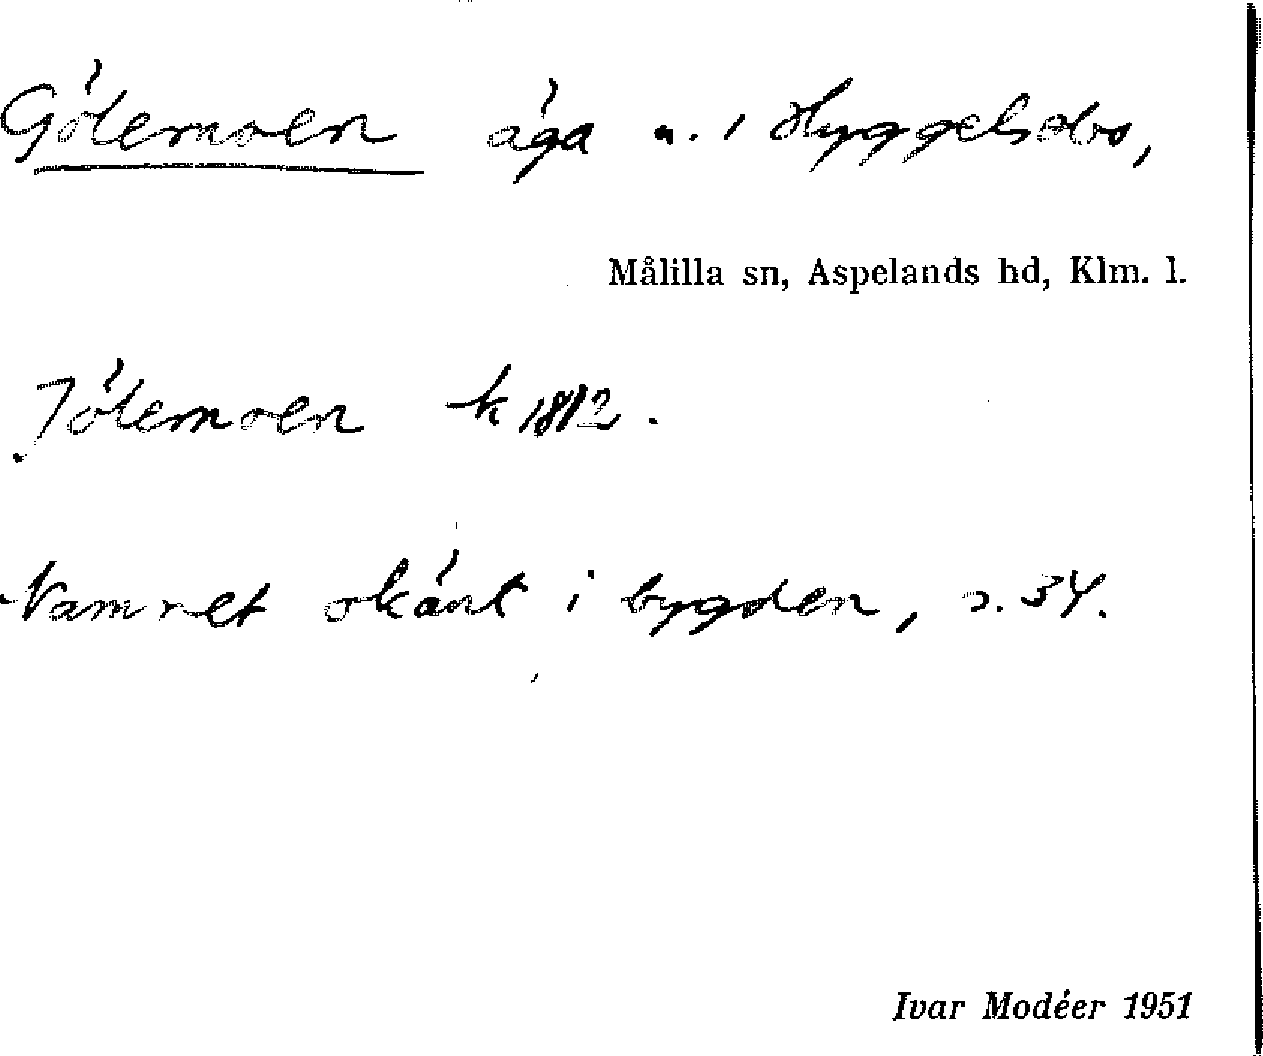 Gölemoen äga u. i Hyggelsebo,
Målilla sn, Aspelands hd, Klm. l.
Jölemoen k 1812.
Namnet okänt i bygden, s. 34.
Ivar Modéer 1951